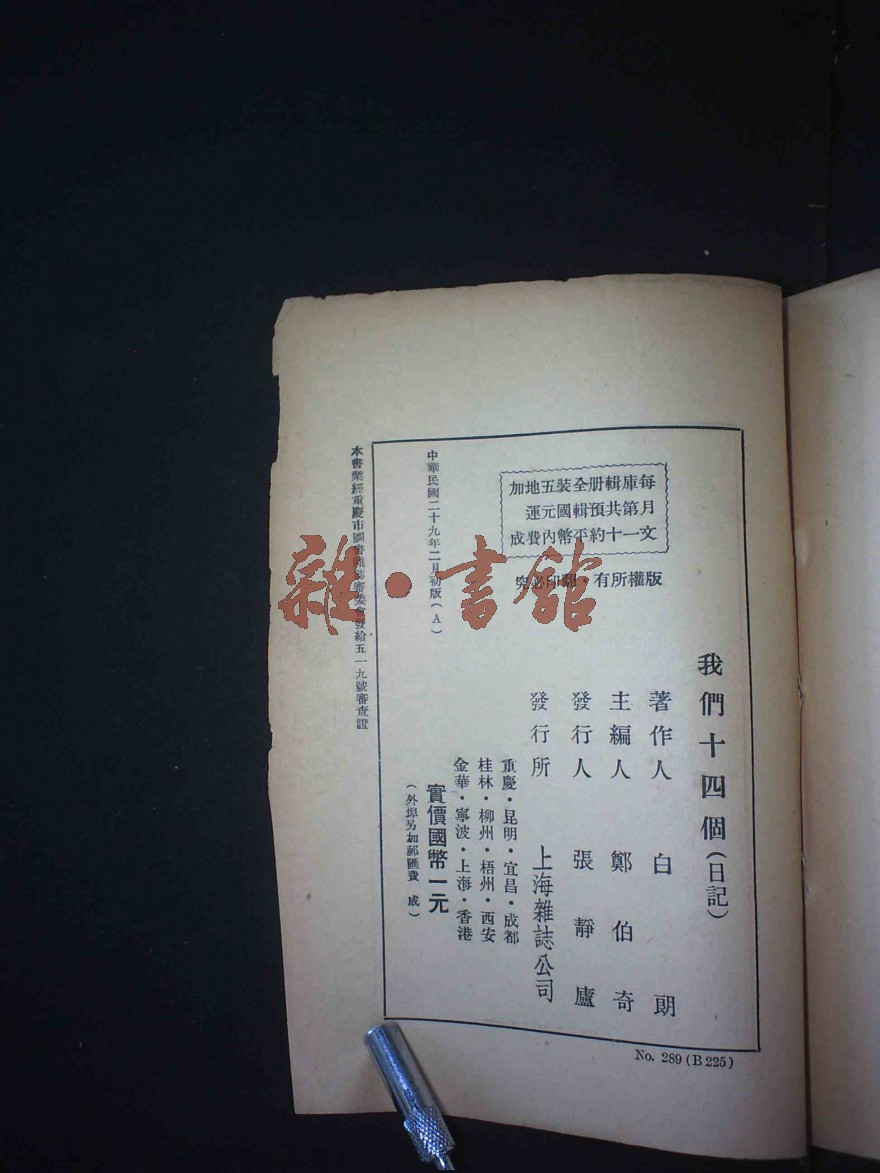 我們十四個(日記)
著作人 白朗
主編人 鄭伯奇
發行人 張靜廬
發行所 上海雜誌公司
重慶・昆明・宜昌・成都
桂林・柳州・梧州・西安
金華・寧波・上海・香港
實價國幣一元
(外埠另加郵匯費 成)
每月文
庫第一
輯共十
册預約
全輯平
裝國幣
五元內
地運費
加 成
版權所有・翻印必究
中華民國二十九年二月初版(A)
本書業經重慶市圖書雜誌審委會發給五一九號審查證
No. 289 (B 225)
雜・書館